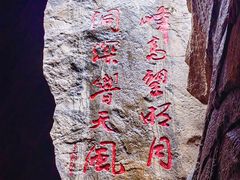 峰高望明月
洞深響天風